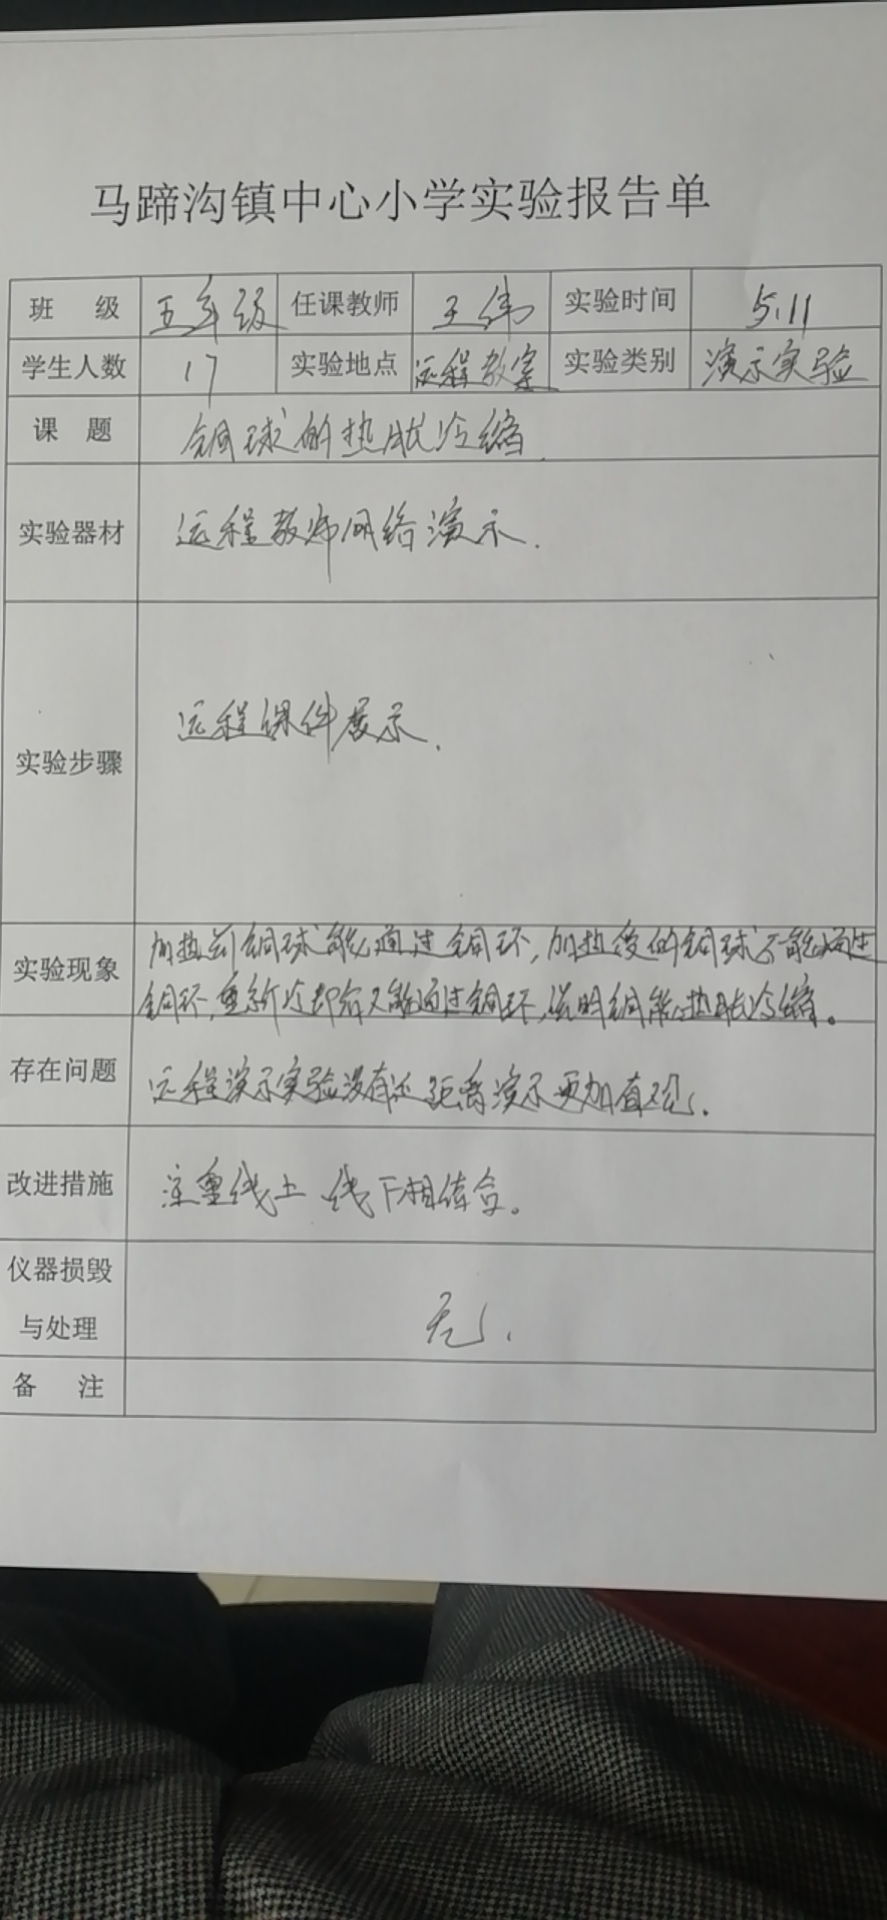 马蹄沟镇中心小学实验报告单
班 级 五年级 任课教师 王伟 实验时间 5.11
学生人数 17 实验地点 远程教室 实验类别 演示实验
课 题 铜球的热胀冷缩.
实验器材 远程教师网络演示.
实验步骤 远程课件展示.
实验现象 加热前铜球能通过铜环,加热后的铜球不能通过
铜环,重新冷却后又能通过铜环,说明铜能热胀冷缩。
存在问题 远程演示实验没有近距离演示更加直观.
改进措施 注重线上 线下相结合。
仪器损毁
与处理 无.
备 注